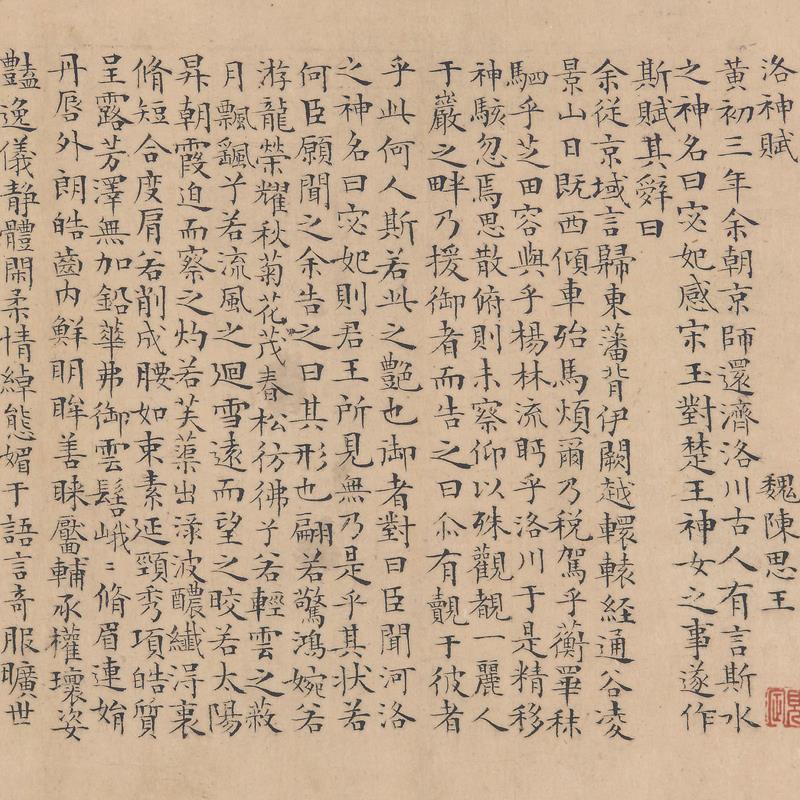 洛神賦 魏陳思王
黃初三年余朝京師還濟洛川古人有言斯水
之神名曰宓妃感宋玉對楚王神女之事遂作
斯賦其辭曰
余從京域言歸東藩背伊闕越轘轅経通谷凌
景山日既西傾車殆馬煩爾乃稅駕乎蘅皋秣
駟乎芝田容與乎楊林流眄乎洛川于是精移
神駭忽焉思散俯則未察仰以殊觀覩一麗人
于巖之畔乃援御者而告之曰尒有覿于彼者
乎此何人斯若此之艷也御者對曰臣聞河洛
之神名曰宓妃則君王所見無乃是乎其状若
何臣願聞之余告之曰其形也翩若驚鴻婉若
游龍榮耀秋菊花茂春松彷彿兮若輕雲之蔽
月飄颻兮若流風之迴雪遠而望之皎若太陽
昇朝霞迫而察之灼若芙蕖出淥波醲纖得衷
脩短合度肩若削成腰如束素延頸秀項皓質
呈露芳澤無加鉛華弗御雲髻峨〻脩眉連娟
丹唇外朗皓齒內鮮明眸善睞靨輔承權瓌姿
豔逸儀靜體閑柔情綽態媚于語言奇服曠世